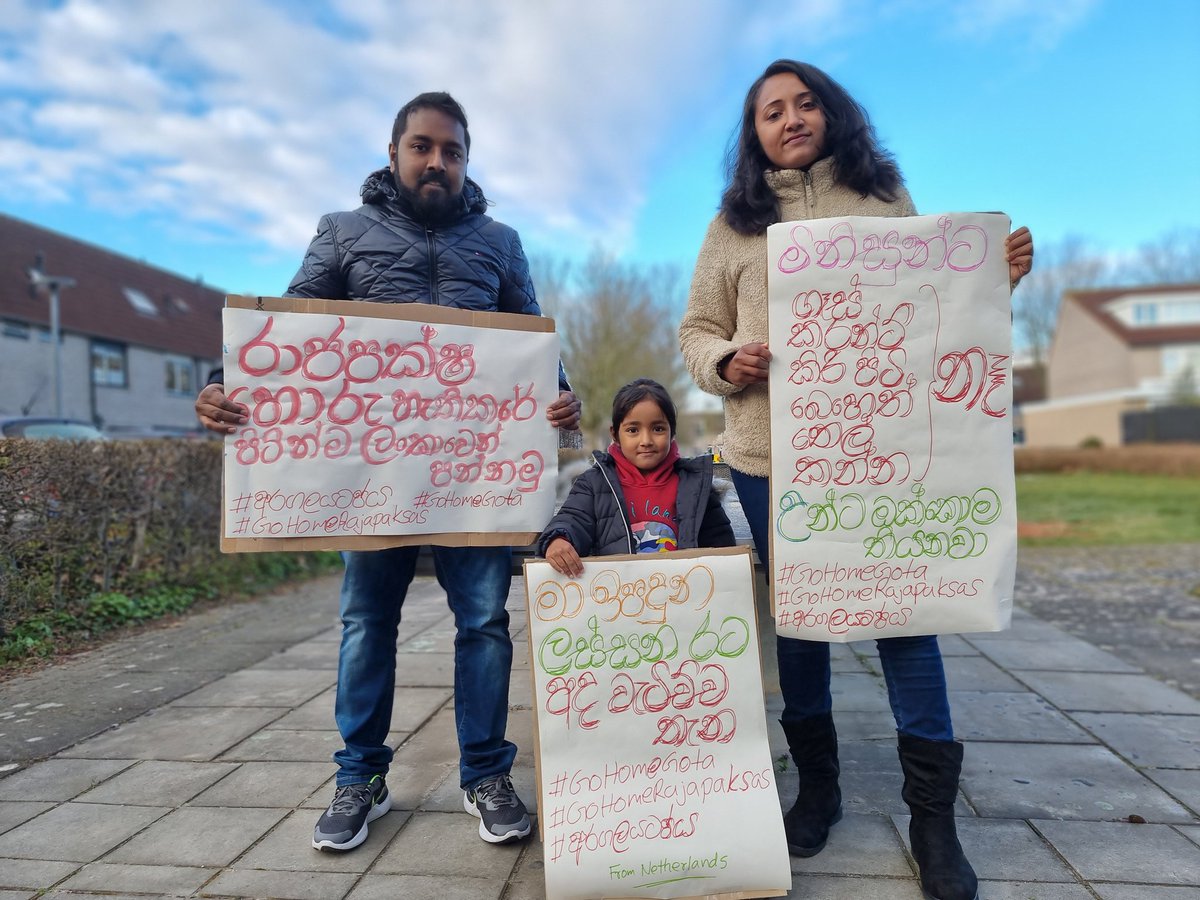 රාජපක්ෂ
හොරු හැතිකරේ
පිටින්ම ලංකාවෙන්
පන්නමු
#අරගලයටජය #GoHomeGota
#GoHomeRajapaksas
මිනිසුන්ට
ගෑස්
කිරන්ටි
කිරි පිටි
බෙහෙත්
තෙල්
කන්න
නෑ
උන්ට ඔක්කොම
තියනවා
#GoHomeGota
#GoHomeRajapaksas
#අරගලයටජය
මා ඉපදුන
ලස්සන රට
අද වැටිච්ච
තැන
#GoHomeGota
#GoHomeRajapaksas
#අරගලයටජය
From Netherlands